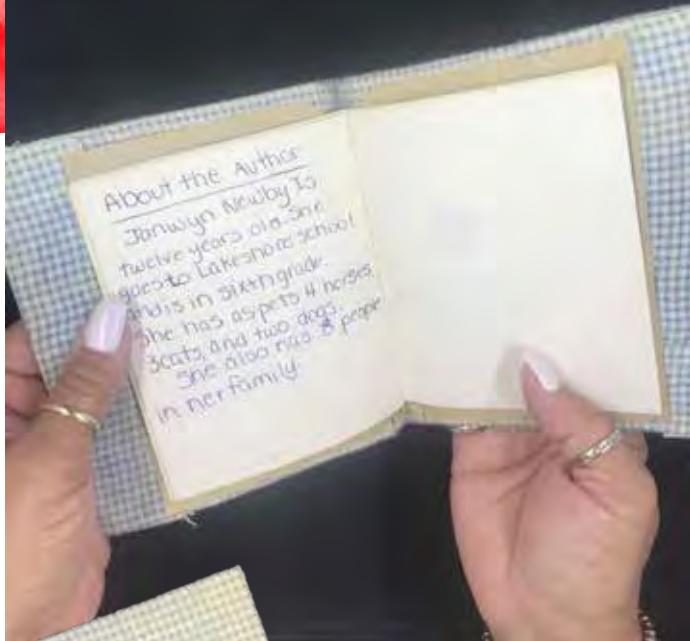 About the Author
Janwyn Newby Is
twelve years old she
goes to Lakeshore school
and is in sixth grade
She has as pets 4 horses,
3 cats, and two dogs.
She also has 8 people
in her family.